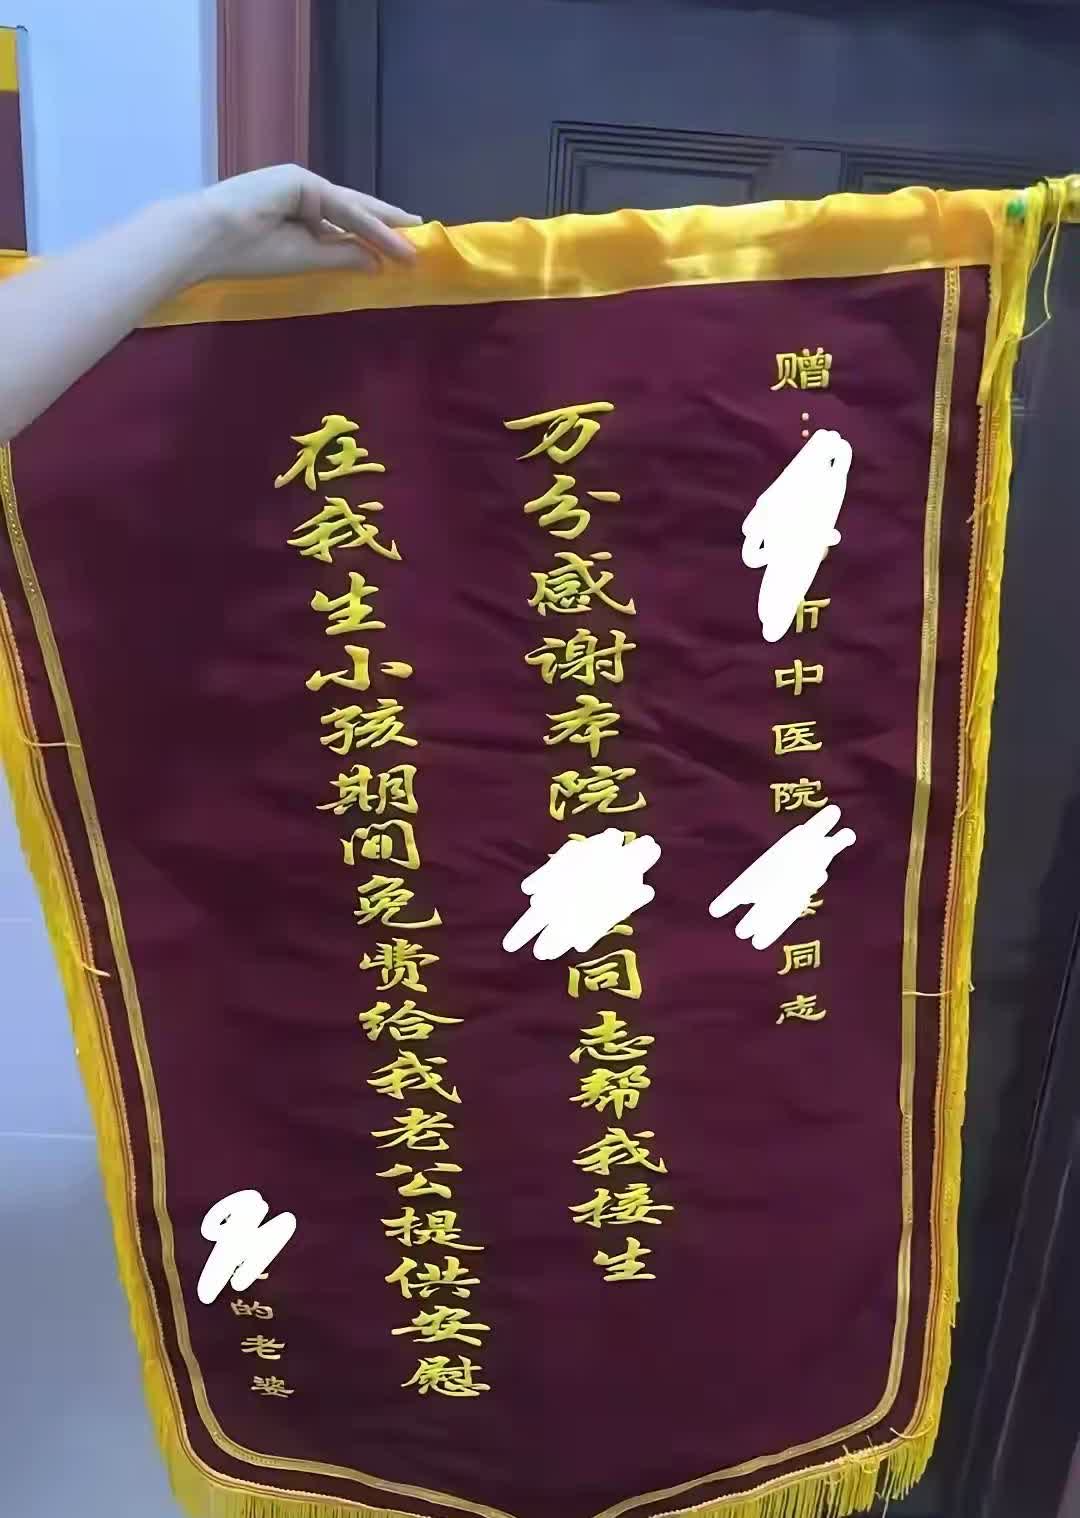 赠：市中医院同志
万分感谢本院同志帮我接生
在我生小孩期间免费给我老公提供安慰
的老婆